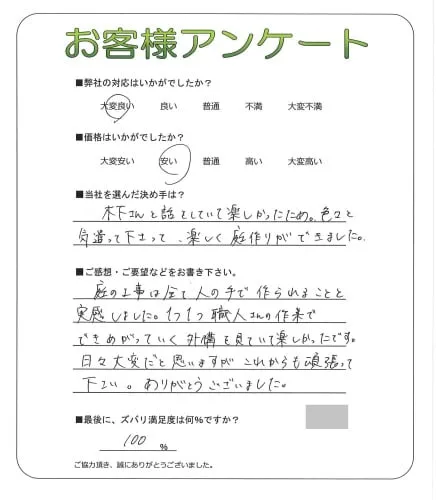 お客様アンケート
■弊社の対応はいかがでしたか?
大変良い 良い 普通 不満 大変不満
■価格はいかがでしたか?
大変安い 安い 普通 高い 大変高い
■当社を選んだ決め手は?
木下さんと話をしていて楽しかったため。色々と
気遣って下さって、楽しく庭作りができました。
■ご感想・ご要望などをお書き下さい。
庭の工事は全て人の手で作られることを
実感しました。1つ1つ職人さんの作業で
できあがっていく外構を見ていて楽しかったです。
日々大変だと思いますがこれからも頑張って
下さい。ありがとうございました。
■最後に、ズバリ満足度は何%ですか?
100 %
ご協力頂き、誠にありがとうございました。